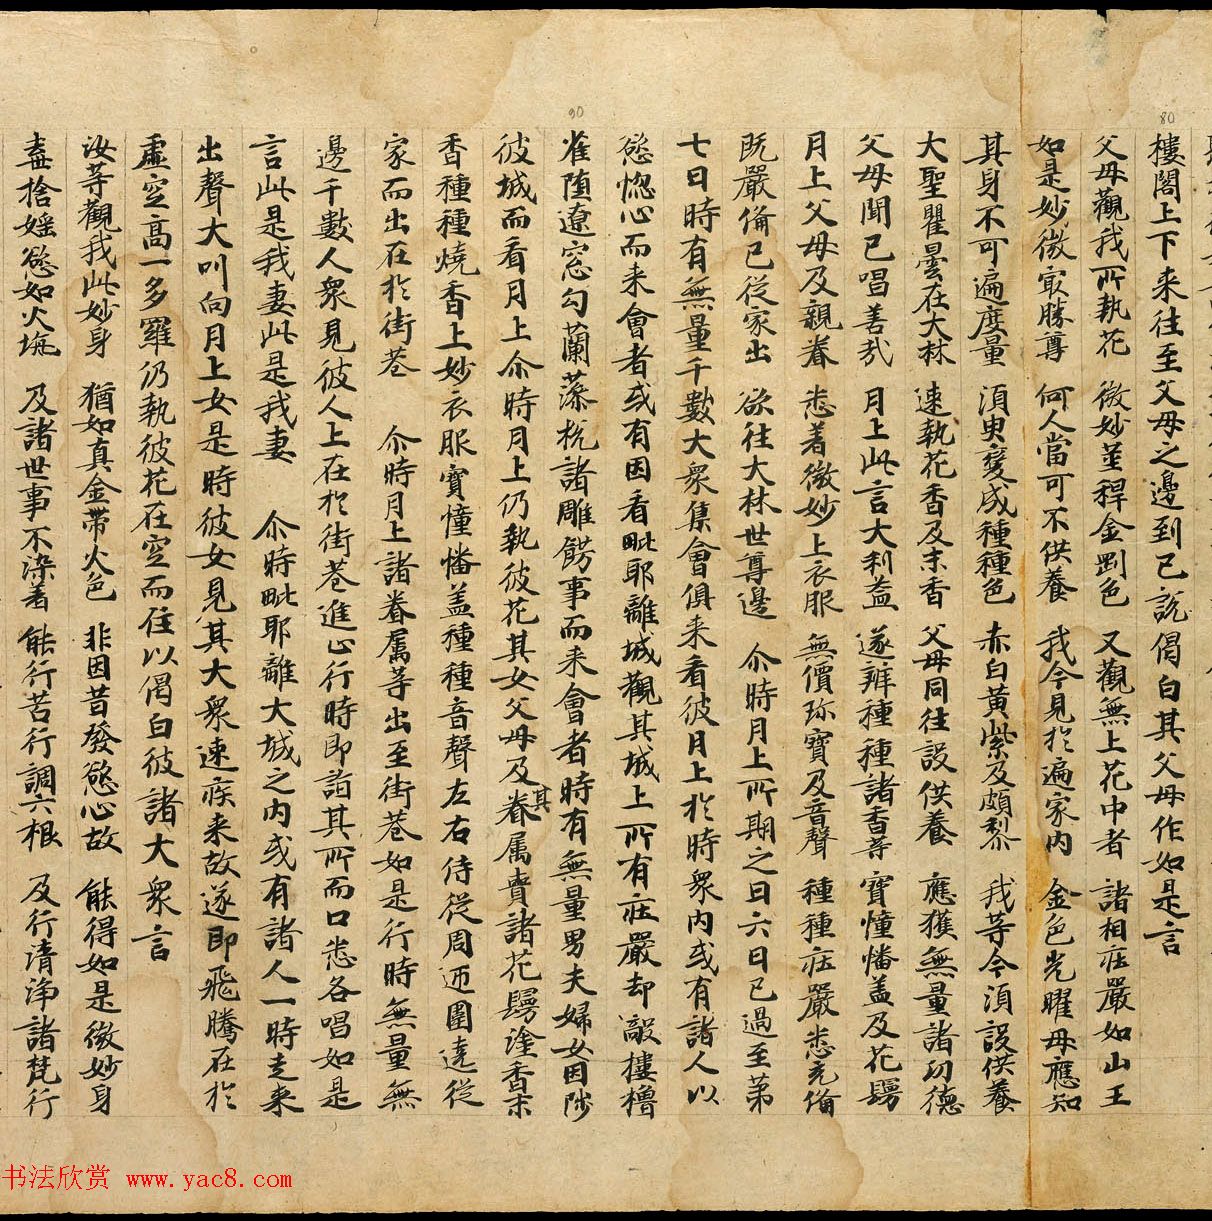 80
樓閣上下来往至父母之邊到已說偈白其父母作如是言
父母觀我所執花 微妙莖稈金剛色 又觀無上花中者 諸相庄嚴如山王
如是妙微冣勝尊 何人當可不供養 我今見於遍家內 金色光曜母應知
其身不可遍度量 須臾變成種種色 赤白黃紫及頗黎 我等今須設供養
大聖瞿曇在大林 速執花香及末香 父母同往設供養 應獲無量諸功德
父母聞已唱善哉 月上此言大利益 遂辦種種諸香等 寶憧幡盖及花鬘
月上父母及親眷 悉着微妙上衣服 無價珎寶及音聲 種種庄嚴悉充俻
既嚴俻已從家出 欲往大林世尊邊 尒時月上所期之日六日已過至第
七日時有無量千數大衆集會俱来看彼月上於時衆內或有諸人以
慾惚心而来會者或有因看毗耶離城觀其城上所有庄嚴却敵摟櫓
90
雀堕遼窓勾蘭藻梲諸雕餝事而来會者時有無量男夫婦女因陟
彼城而看月上尒時月上仍執彼花其女父母及其眷属賫諸花鬘塗香末
香種種燒香上妙衣服寶憧幡盖種種音聲左右侍從周迊圍遶從
家而出在於街巷 尒時月上諸眷属等出至街巷如是行時無量無
邊千數人衆見彼人上在於街巷進止行時即詣其所而口悉各唱如是
言此是我妻此是我妻 尒時毗耶離大城之內或有諸人一時走来
出聲大叫向月上女是時彼女見其大衆速疾来故遂即飛騰在於
虛空高一多羅仍執彼花在空而住以偈白彼諸大衆言
汝等觀我此妙身 猶如真金帶火色 非因昔發慾心故 能得如是微妙身
盍捨婬慾如火坑 及諸世事不染着 能行苦行調六根 及行清淨諸梵行
书法欣赏 www.yac8.com